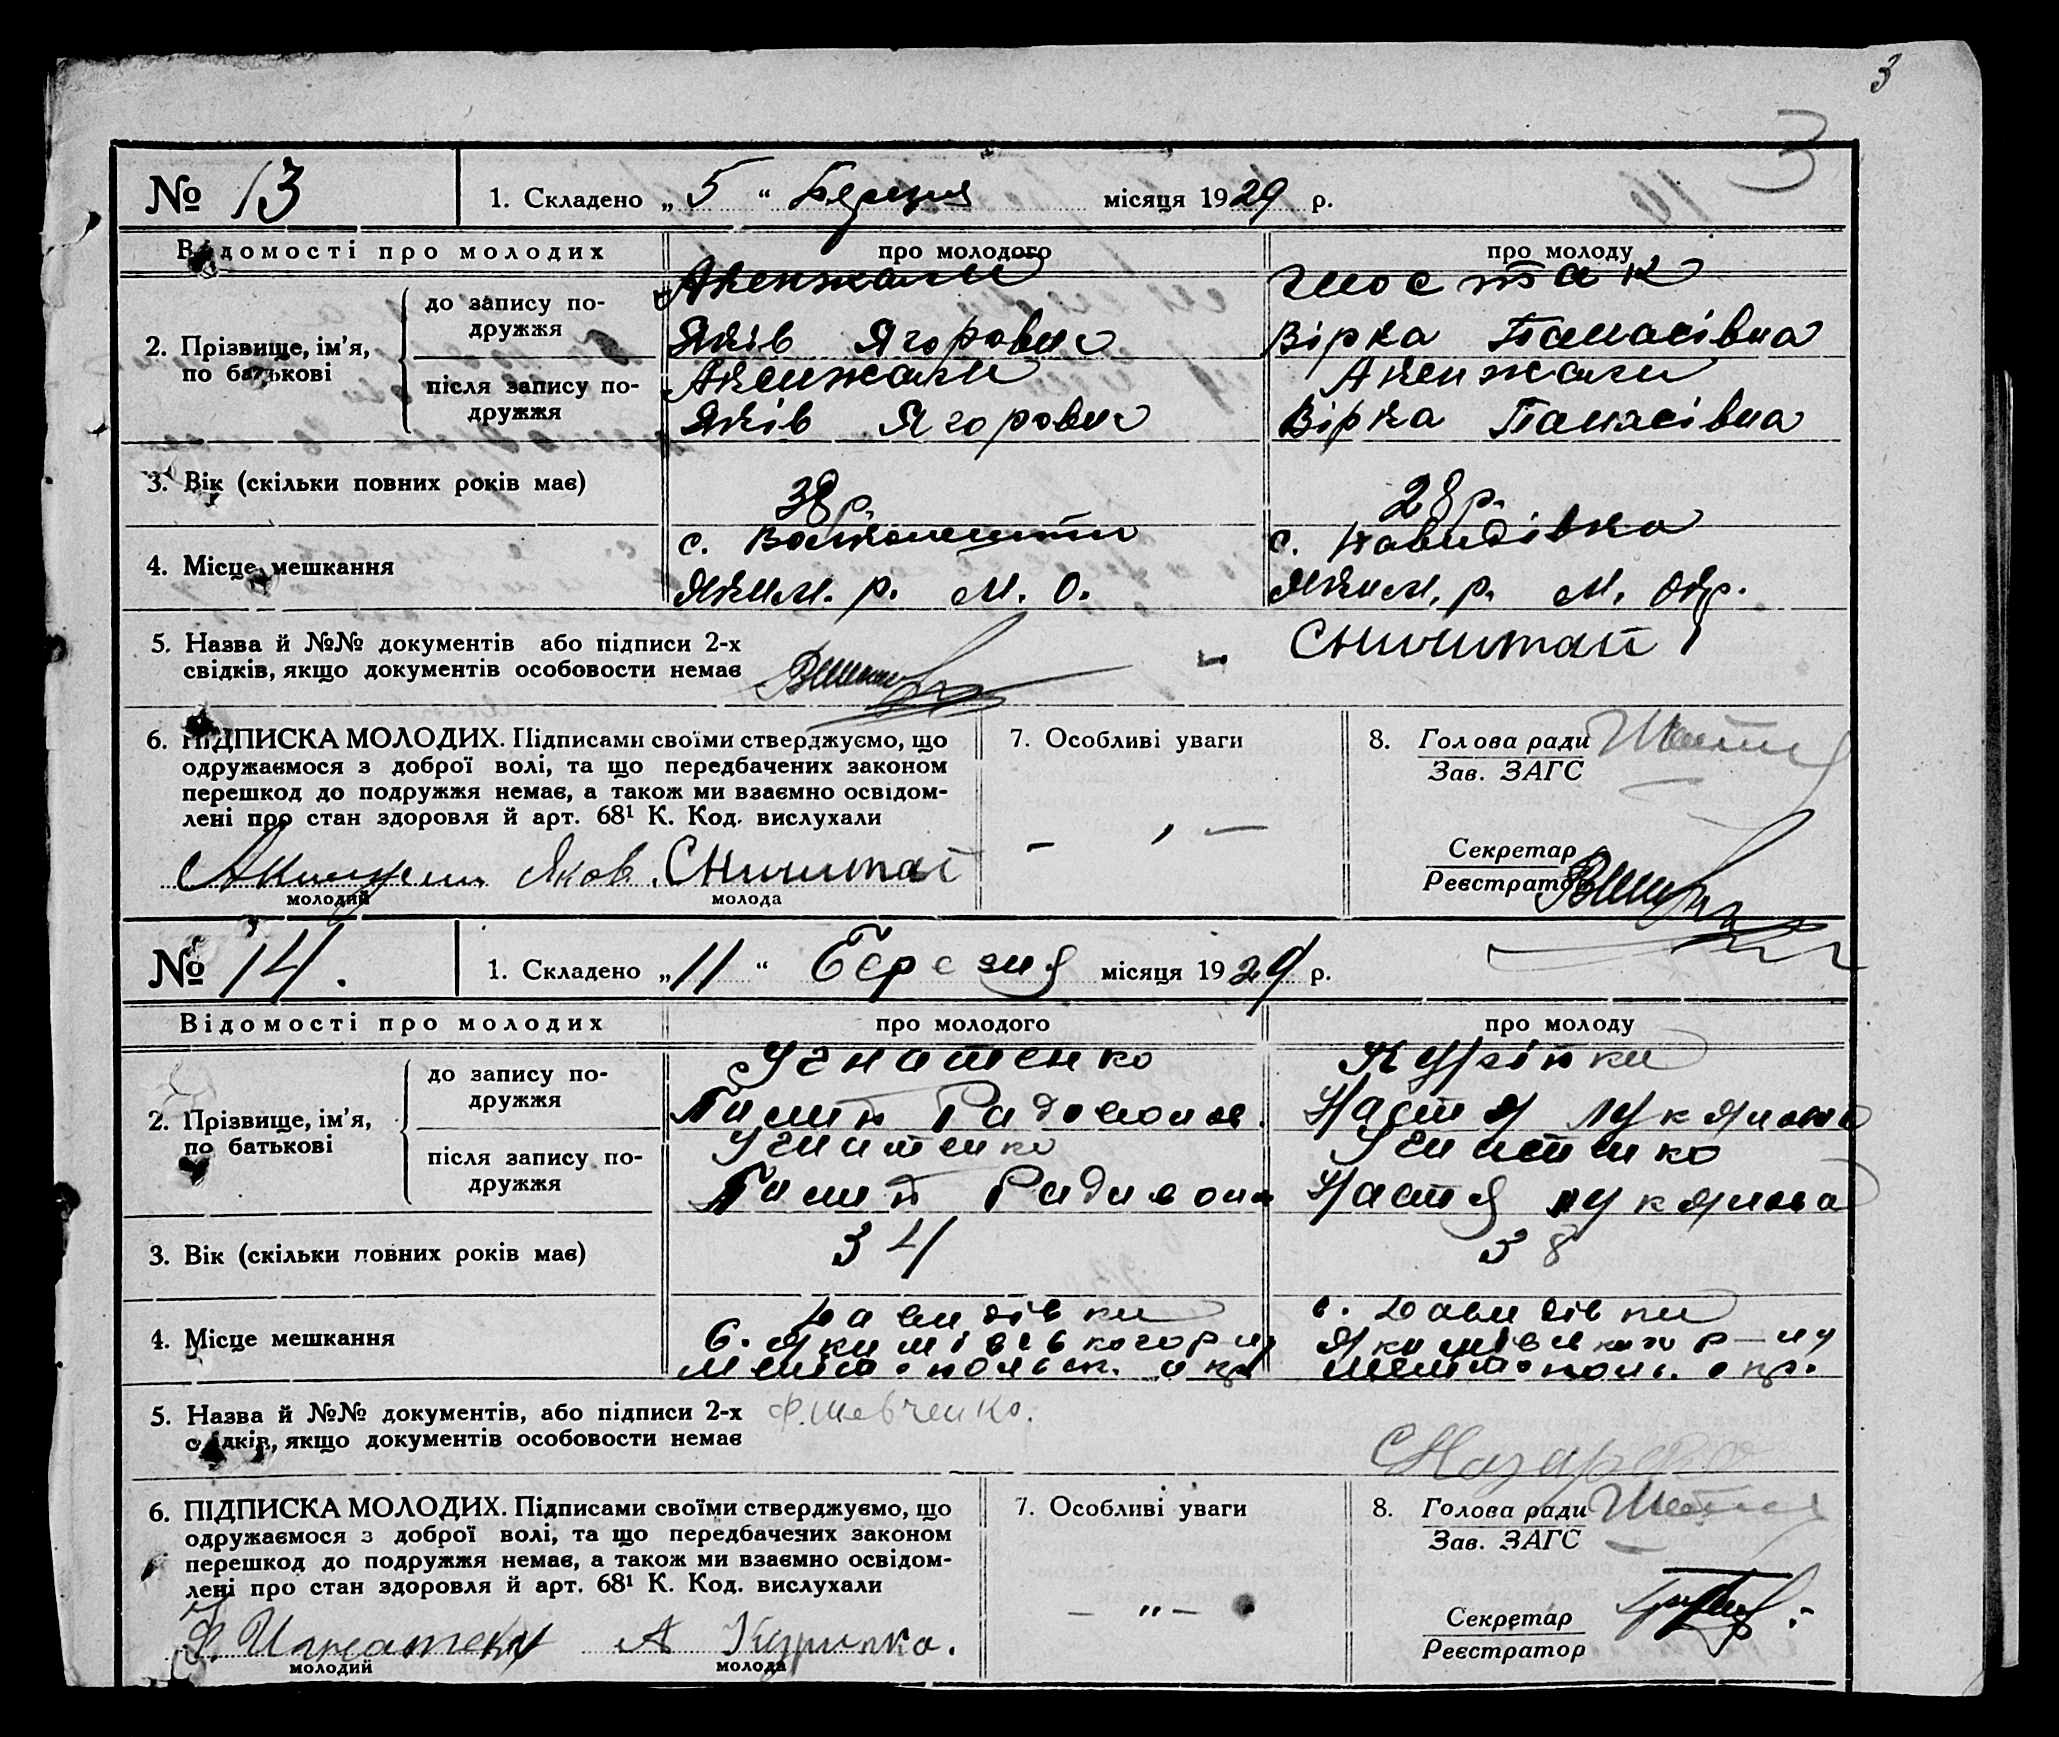 3
3
№ 13 1. Складено „ 5 “ Березня місяця 1929 р.
Відомості про молодих про молодого про молоду
Акенжали Шостак
2. Прізвище, ім’я, по батькові до запису подружжя Яків Ягорович Вірка Панасівна
після запису подружжя Акенжали Акенжали
Яків Ягорович Вірка Панасівна
3. Вік (скільки повних років має) 38 р. 28 р.
4. Місце мешкання с. с. Давидівка
Яким. р. М. О. Яким. р. М. Окр.
5. Назва й №№ документів або підписи 2-х
свідків, якщо документів особовости немає СНичитай
6. ПІДПИСКА МОЛОДИХ. Підписами своїми стверджуємо, що
одружаємося з доброї волі, та що передбачених законом
перешкод до подружжя немає, а також ми взаємно освідом-
лені про стан здоровля й арт. 68¹ К. Код. вислухали
Яков. СНичитай
молодий молода
7. Особливі уваги
- „ -
8. Голова ради
Зав. ЗАГС
Секретар
Реєстратор
№ 14. 1. Складено „ 11 “ Березня місяця 1929 р.
Відомості про молодих про молодого про молоду
Ігнатенко Куріпки
2. Прізвище, ім’я, по батькові до запису подружжя Пилип Радивонов. Настя Лукянова
після запису подружжя Ігнатенко Ігнатенко
Пилип Радивонов Настя Лукянова
3. Вік (скільки повних років має) 34 38
4. Місце мешкання Давидівки с. Давидівки
с. Якимівського р-ну Якимівського р-ну
Мелітопольск. окр. Мелітополь. окр.
5. Назва й №№ документів, або підписи 2-х Ф. Шевченко.
свідків, якщо документів особовости немає
6. ПІДПИСКА МОЛОДИХ. Підписами своїми стверджуємо, що
одружаємося з доброї волі, та що передбачених законом
перешкод до подружжя немає, а також ми взаємно освідом-
лені про стан здоровля й арт. 68¹ К. Код. вислухали
Ф. А Курипка.
молодий молода
7. Особливі уваги
- „ -
8. Голова ради
Зав. ЗАГС
Секретар
Реєстратор